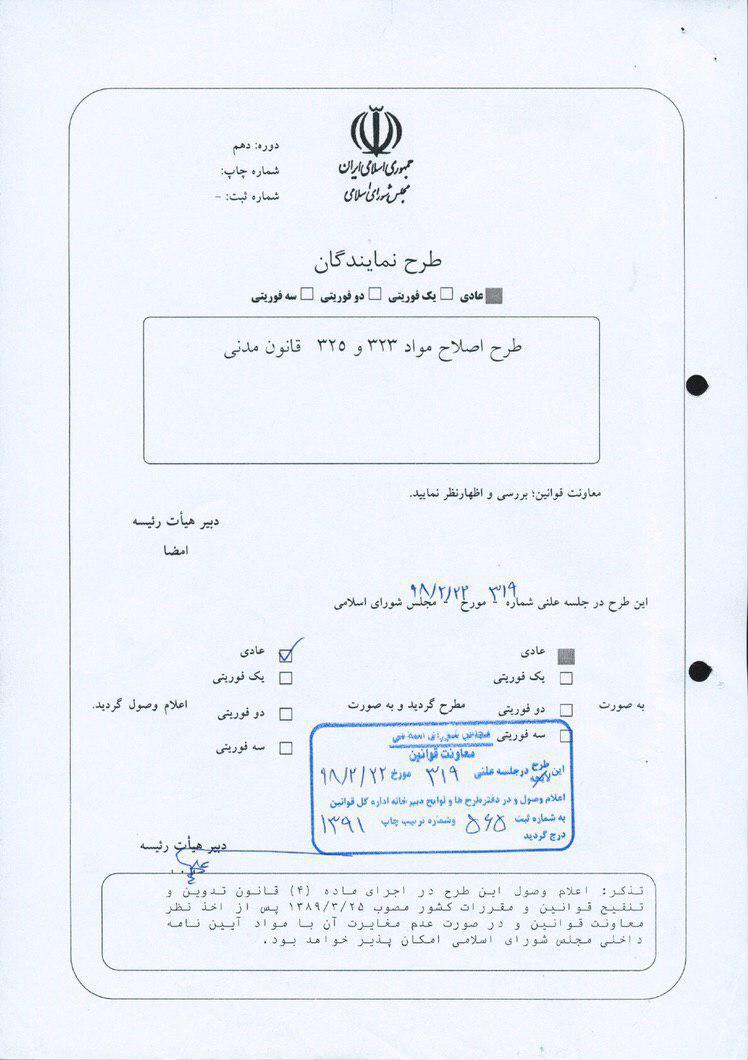 جمهوری اسلامی ایران
مجلس شورای اسلامی
دوره: دهم
شماره چاپ:
شماره ثبت: -
طرح نمایندگان
عادی یک فوریتی دو فوریتی سه فوریتی
طرح اصلاح مواد ۳۲۳ و ۳۲۵ قانون مدنی
معاونت قوانین؛ بررسی و اظهارنظر نمایید.
دبیر هیأت رئیسه
امضا
این طرح در جلسه علنی شماره ۳۱۹ مورخ ۹۸/۲/۲۲ مجلس شورای اسلامی
عادی عادی
یک فوریتی یک فوریتی
به صورت دو فوریتی مطرح گردید و به صورت دو فوریتی اعلام وصول گردید.
سه فوریتی سه فوریتی
مجلس شورای اسلامی
معاونت قوانین
این طرح لایحه در جلسه علنی ۳۱۹ مورخ ۹۸/۲/۲۲
اعلام وصول و در دفتر طرح ها و لوایح دبیر خانه اداره کل قوانین
به شماره ثبت ۵۶۵ وشماره ترتیب چاپ ۱۳۹۱
درج گردید
دبیر هیأت رئیسه
تذکر: اعلام وصول این طرح در اجرای ماده (۴) قانون تدوین و
تنقیح قوانین و مقررات کشور مصوب ۱۳۸۹/۳/۲۵ پس از اخذ نظر
معاونت قوانین و در صورت عدم مغایرت آن با مواد آیین نامه
داخلی مجلس شورای اسلامی امکان پذیر خواهد بود.